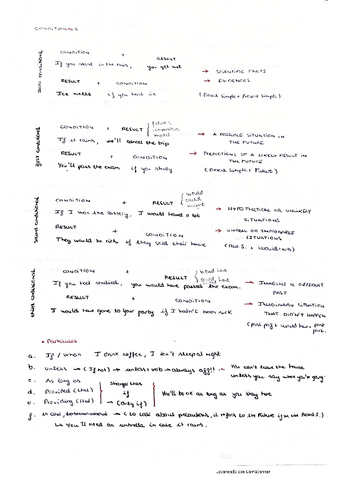 CONDITIONALS
ZERO CONDITIONAL
CONDITION + RESULT
If you stand in the rain, you get wet → SCIENTIFIC FACTS
RESULT + CONDITION → EVIDENCES
Ice melts if you heat it (Present Simple + Present Simple)
FIRST CONDITIONAL
CONDITION + RESULT { future imperative modal
If it rains, we'll cancel the trip → A POSSIBLE SITUATION IN THE FUTURE
RESULT + CONDITION → PREDICTIONS OF A LIKELY RESULT IN THE FUTURE
You'll pass the exam if you study (Present Simple + Future)
SECOND CONDITIONAL
CONDITION + RESULT { would could might
If I won the lottery, I would travel a lot → HYPOTHETICAL OR UNLIKELY SITUATIONS
RESULT + CONDITION → UNREAL OR IMPROBABLE SITUATIONS
They would be rich if they sold their house (Past S. + Would+inf)
THIRD CONDITIONAL
CONDITION + RESULT
If you had studied, you would have passed the exam. → IMAGINE A DIFFERENT PAST
RESULT + CONDITION → IMAGINARY SITUATION THAT DIDN'T HAPPEN
I would have gone to your party if I hadn't been sick (past perf + would have + past part.
PARTICULAR
a. If / When I drink coffee, I don't sleep at night
b. Unless → (If not) → unless + verb → always aff!! → You can't leave the house unless you say where you're going.
c. As long as
d. Provided (that) stronger than if
e. Providing (that) → (only if) You'll be ok as long as you stay here
f. In case → (to talk about precautions, it refers to the future if in the Present S.)
↳ You'll need an umbrella in case it rains.